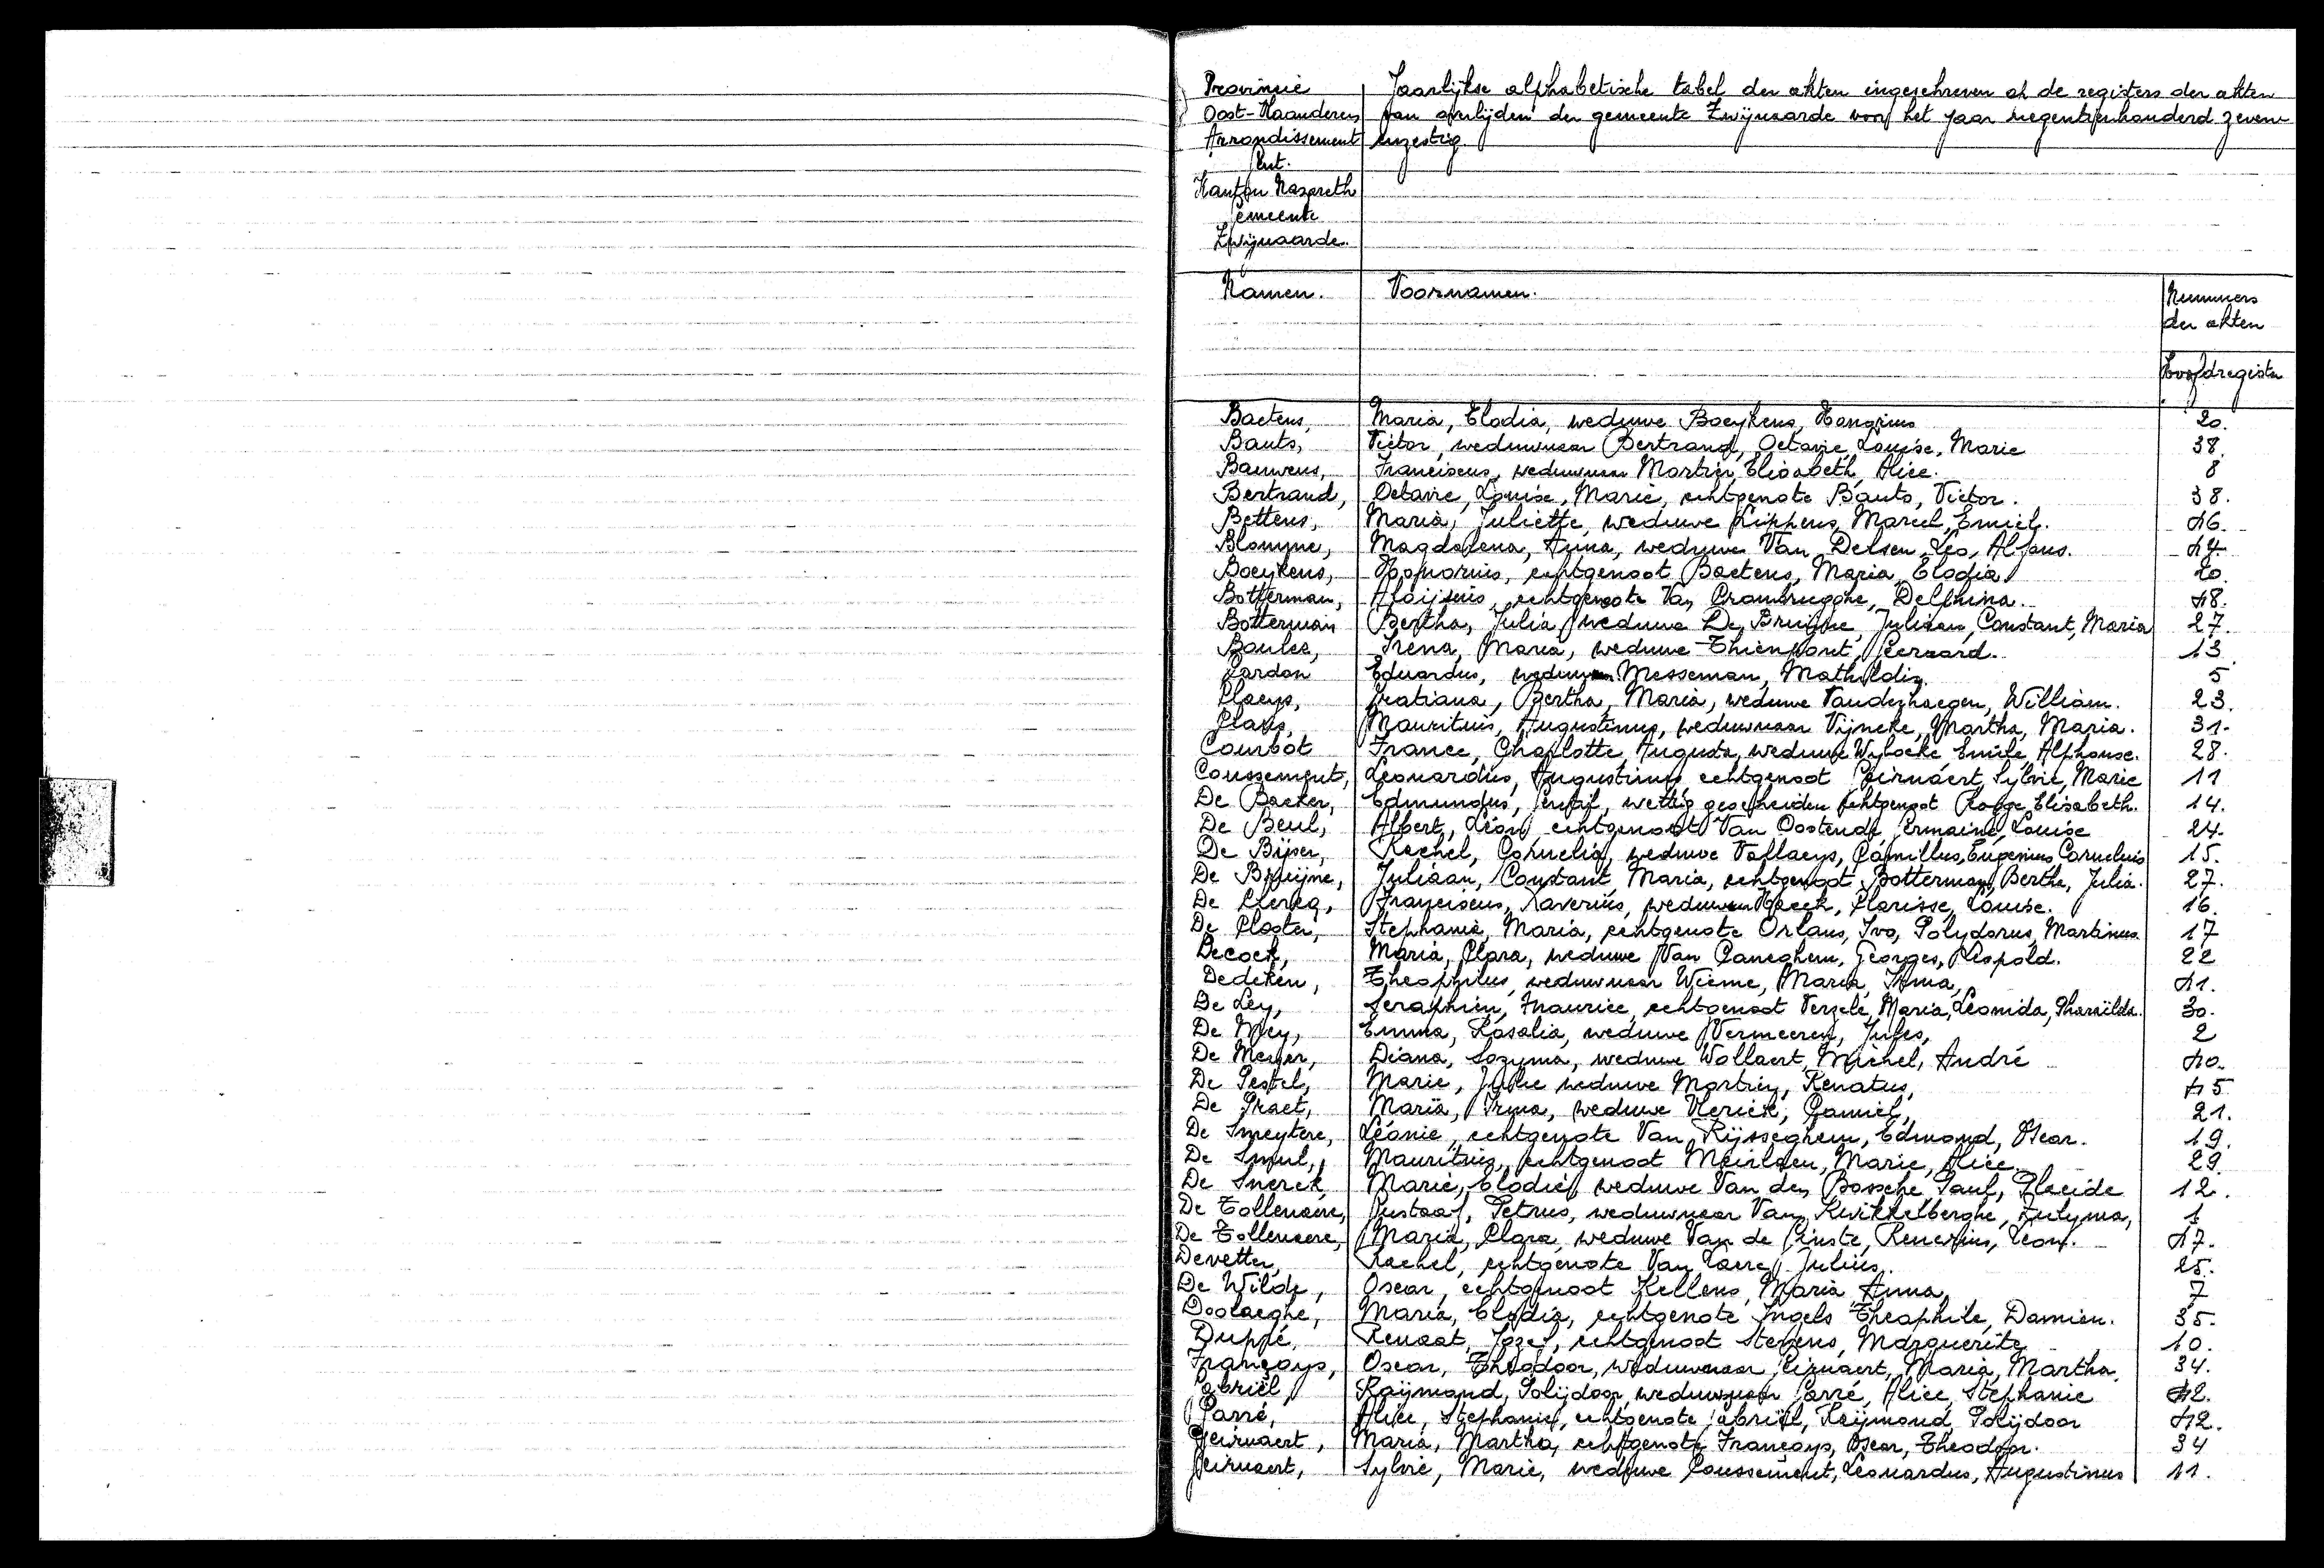 Provincie
Oost-Vlaanderen
Arrondissement
Gent.
Kanton Nazareth
Gemeente
Zwijnaarde.
Jaarlijkse alphabetische tabel der akten ingeschreven op de registers der akten
van overlijden der gemeente Zwijnaarde voor het jaar negentienhonderd zeven-
enzestig.
Namen. Voornamen. Nummers
der akten
Hoofdregister
Baetens, Maria, Elodia, weduwe Boeykens, Honorius 20.
Bauts, Victor, weduwnaar Bertrand, Octavie, Louise, Marie 38.
Bauwens, Franciscus, weduwnaar Martin, Elisabeth, Alice. 8
Bertrand, Octavie, Louise, Marie, echtgenote Bauts, Victor. 38.
Bettens, Maria, Juliette, weduwe Lippens, Marcel, Emiel. 46.
Blomme, Magdalena, Anna, weduwe Van Delsen, Leo, Alfons.
Boeykens, Honorius, echtgenoot Baetens, Maria, Elodia. 20.
Botterman, Aloijsius, echtgenote Van Crombrugghe, Delphina. 48.
Botterman Bertha, Julia, weduwe De Bruijne, Juliaan, Constant, Maria 27.
Boulez, Irena, Maria, weduwe Thienpont, Gerard. 13
Cardon Eduardus, Messeman, Mathildis. 5
Claeys, Gratiana, Bertha, Maria, weduwe Vanderhaegen, William. 23.
Claus, Mauritius, Augustinus, weduwnaar Vijncke, Martha, Maria. 31.
Courbot France, Charlotte, Augusta, weduwe Wybocke, Emile, Alphonse. 28.
Coussement, Leonardus, Augustinus, echtgenoot Geirnaert, Sylvie, Marie 11
De Backer, Edmundus, Gentil, wettig gescheiden echtgenoot Rogge, Elisabeth. 14.
De Beul, Albert, Léon, echtgenoot Van Oostende, Germaine, Louise 24.
De Bijser, Rachel, Cornelia, weduwe Vallaeys, Camillus, Eugenius, Cornelius 15.
De Bruijne, Juliaan, Constant, Maria, echtgenoot Botterman, Berthe, Julia. 27.
De Clercq, Franciscus, Xaverius, Clarisse, Louise. 16.
De Clooter, Stephanie, Maria, echtgenote Orlans, Ivo, Polydorus, Martinus. 17
Decock, Maria, Clara, weduwe Van Caneghem, Georges, Léopold. 22
Dedeken, Theophilus, weduwnaar Wieme, Maria, Irma, 41.
De Ley, Seraphien, Maurice, echtgenoot Verzele, Maria, Leonida, Pharaïlde. 30.
De Mey, Emma, Rosalia, weduwe Vermeeren, Jules, 2
De Meyer, Diana, Sozyma, weduwe Vollaert, Michel, André 40.
De Pestel, Marie, Julie weduwe Martin, Renatus, 45
De Praet, Maria, Irma, weduwe Vlerick, Camiel, 21.
De Smeytere, Léonie, echtgenote Van Rijsseghem, Edmond, Oscar. 19.
De Smul, Mauritius, echtgenoot Meirlaen, Marie, Alice. 29.
De Snerck, Marie, Elodie, weduwe Van den Bossche, Paul, Placide 12.
De Tollenaere, Gustaaf, Petrus, weduwnaar Van Kwikkelberghe, Zulyma, 1
De Tollenaere, Maria, Clara, weduwe Van de Ginste, Leon.
Devetter, Rachel, echtgenote Julius. 25.
De Wilde, Oscar, echtgenoot Kellens, Maria Anna, 7
Doolaeghe, Maria, Elodia, echtgenote Ingels Theophile, Damien. 35.
Duppé, Renaat, Jozef, echtgenoot Stevens, Marguerite 10.
Françoys, Oscar, Theodoor, weduwnaar Geirnaert, Maria, Martha. 34.
Gabriël Raijmond, Polijdoor, weduwnaar Garré, Alice, Stephanie 42.
Garré, Alice, Stephanie, echtgenote Gabriël, Raijmond, Polijdoor 42.
Geirnaert, Maria, Martha, echtgenote Françoys, Oscar, Theodoor. 34
Geirnaert, Sylvie, Marie, weduwe Coussement, Leonardus, Augustinus 11.